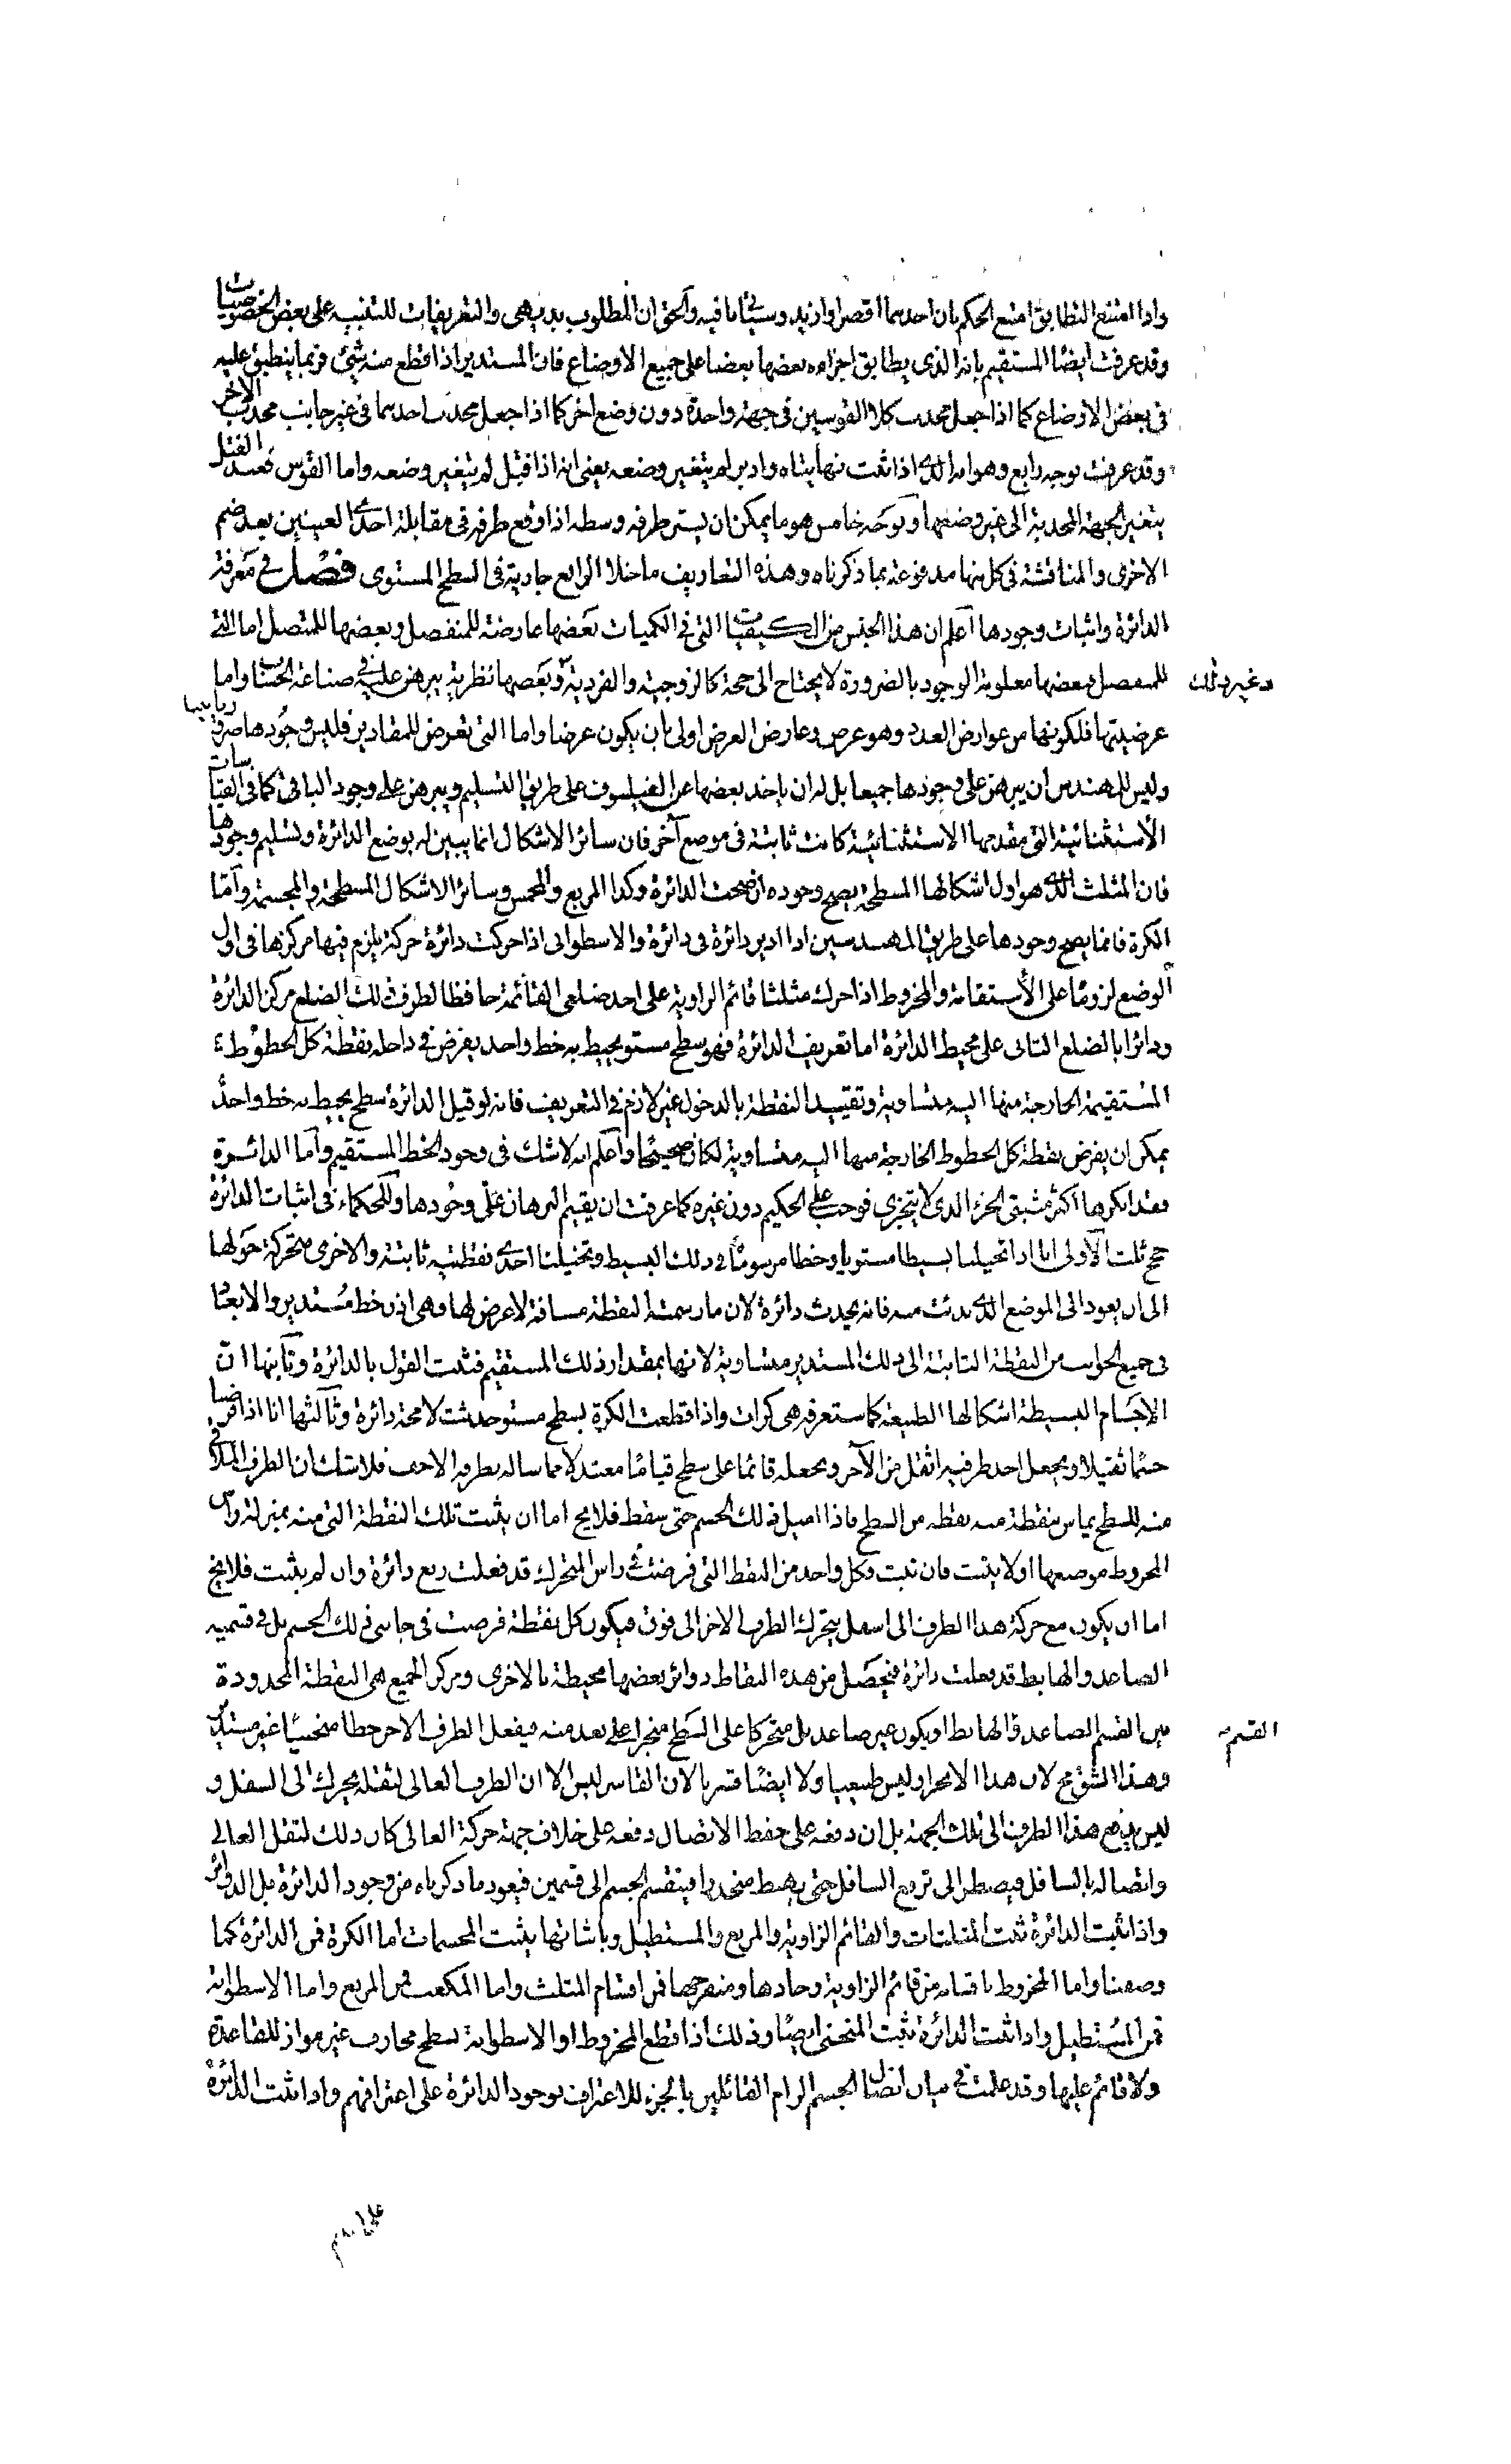 واذا امتنع التطابق امتنع الحكم بان احدهما اقصر او ازيد وسيأتى ما فيه والحق ان المطلوب بديهى والتعريفات للتنبيه على بعض الخصوصيات
وقد عرفت ايضا المستقيم بانه الذى يطابق اجزاءه بعضها بعضا على جميع الاوضاع فان المستدير اذا قطع منه شئ فربما ينطبق عليه
فى بعض الاوضاع كما اذا جعل محدب كلا القوسين فى جهة واحدة دون وضع اخر كما اذا جعل محدب احدهما فى غير جانب محدب الاخر
وقد عرفت بوجه رابع وهو انه الذى اذا ثبت نهايتاه وادير لم يتغير وضعه يعنى انه اذا فتل لم يتغير وضعه واما القوس فعند الفتل
يتغير الجهة المحدبة الى غير وضعها وبوجه خامس هو ما يمكن ان يستر طرفه وسطه اذا وقع طرفه فى مقابلة احدى العينين بعد ضم
الاخرى والمناقشة فى كل منها مدفوعة بما ذكرناه وهذه التعاريف ما خلا الرابع جارية فى السطح المستوى فصل فى معرفة
الدائرة واثبات وجودها اعلم ان هذا الجنس من الكيفيات التى فى الكميات بعضها عارضة للمنفصل وبعضها للمتصل اما التى
للمنفصل فبعضها معلومة الوجود بالضرورة لا يحتاج الى حجة كالزوجية والفردية وبعضها نظرية يبرهن عليه فى صناعة الحساب واما
وغير ذلك
عرضيتها فلكونها من عوارض العدد وهو عرض وعارض العرض اولى بان يكون عرضا واما التى تعرض للمقادير فليس وجودها ضروريا بينا
وليس للمهندس ان يبرهن على وجودها جميعا بل له ان ياخذ بعضها عن الفيلسوف على طريق التسليم ويبرهن على وجود الباقى كما فى القياسات
الاستثنائية التى مقدمها الاستثنائية كانت ثابتة فى موضع آخر فان سائر الاشكال انما يبين له بوضع الدائرة وتسليم وجودها
فان المثلث الذى هو اول اشكالها المسطحة يصح وجوده ان صحت الدائرة وكذا المربع والمخمس وسائر الاشكال المسطحة والمجسمة واما
الكرة فانما يصح وجودها على طريق المهندسين اذا ادير دائرة فى دائرة والاسطوانى اذا حركت دائرة حركة يلزم فيها مركزها فى اول
الوضع لزوما على الاستقامة والمخروط اذا حرك مثلثا قائم الزاوية على احد ضلعى القائمة حافظا لطرف ذلك الضلع مركز الدائرة
ودائرا بالضلع الثانى على محيط الدائرة اما تعريف الدائرة فهو سطح مستو يحيط به خط واحد يفرض فى داخله نقطة كل الخطوط
المستقيمة الخارجة منها اليه متساوية وتقييد النقطة بالدخول غير لازم فى التعريف فانه لو قيل الدائرة سطح يحيط به خط واحد
يمكن ان يفرض نقطة كل الخطوط الخارجة منها اليه متساوية لكان صحيحا واعلم انه لا شك فى وجود الخط المستقيم واما الدائرة
فقد انكرها اكثر مثبتى الجزء الذى لا يتجزى فوجب على الحكيم دون غيره كما عرفت ان يقيم البرهان على وجودها وللحكماء فى اثبات الدائرة
حجج ثلث الاولى انا اذا تخيلنا بسيطا مستويا وخطا مرسوما فى ذلك البسيط وتخيلنا احدى نقطتيه ثابتة والاخرى متحركة حولها
الى ان يعود الى الموضع الذى بدئت منه فانه يحدث دائرة لان ما رسمته النقطة مسافة لا عرض لها وهى اذن خط مستدير والابعاد
فى جميع الجوانب من النقطة الثابتة الى ذلك المستدير متساوية لانها بمقدار ذلك المستقيم فثبت القول بالدائرة وثانيها ان
الاجسام البسيطة اشكالها الطبيعة كما ستعرفه هى كرات واذا قطعت الكرة بسطح مستو حدثت لا محة دائرة وثالثها انا اذا فرضنا
جسما ثقيلا ويجعل احد طرفيه اثقل من الآخر ونجعله قائما على سطح قياما معتدلا مماسا له بطرفه الاخف فلا شك ان الطرف الملاقى
منه للسطح يماس بنقطة منه نقطة من السطح فاذا اميل ذلك الجسم حتى سقط فلا يخ اما ان يثبت تلك النقطة التى منه بمنزلة راس
المخروط موضعها او لا يثبت فان ثبت فكل واحد من النقط التى فرضت فى راس المتحرك قد فعلت ربع دائرة وان لم يثبت فلا يخ
اما ان يكون مع حركة هذا الطرف الى اسفل يتحرك الطرف الاخر الى فوق فيكون كل نقطة فرضت فى جانبى ذلك الجسم بل فى قسميه
الصاعد والهابط قد فعلت دائرة فيتحصل من هذه النقاط دوائر بعضها محيطة بالاخرى ومركز الجميع هى النقطة المحدودة
بين القسم الصاعد والهابط او يكون غير صاعد بل متحركا على السطح منجرا على بعد منه فيفعل الطرف الاخر خطا منحنيا غير مستدير
القسم
وهذا الشق مح لان هذا الانجرار ليس طبيعيا ولا ايضا قسريا لان القاسر ليس الا ان الطرف العالى لثقله يحرك الى السفل و
ليس يدفع هذا الطرف الى تلك الجهة بل ان دفعه على حفظ الاتصال دفعه على خلاف جهة حركة العالى كان ذلك لثقل العالى
واتصاله بالسافل فيضطر الى ترفع السافل حتى يهبط منحدرا فينقسم الجسم الى قسمين فيعود ما ذكرناه من وجود الدائرة بل الدوائر
واذا ثبت الدائرة ثبت المثلثات والقائم الزاوية والمربع والمستطيل وباثباتها يثبت المجسمات اما الكرة فمن الدائرة كما
وصفنا واما المخروط باقسامه من قائم الزاوية وحادها ومنفرجها فمن اقسام المثلث واما المكعب فمن المربع واما الاسطوانة
فمن المستطيل واذا ثبت الدائرة يثبت المنحنى ايضا وذلك اذا قطع المخروط او الاسطوانة بسطح محارف غير مواز للقاعدة
ولا قائم عليها وقد علمت فى بيان اتصال الجسم الزام القائلين بالجزء للاعتراف بوجود الدائرة على اعترافهم واذا ثبت الدائرة